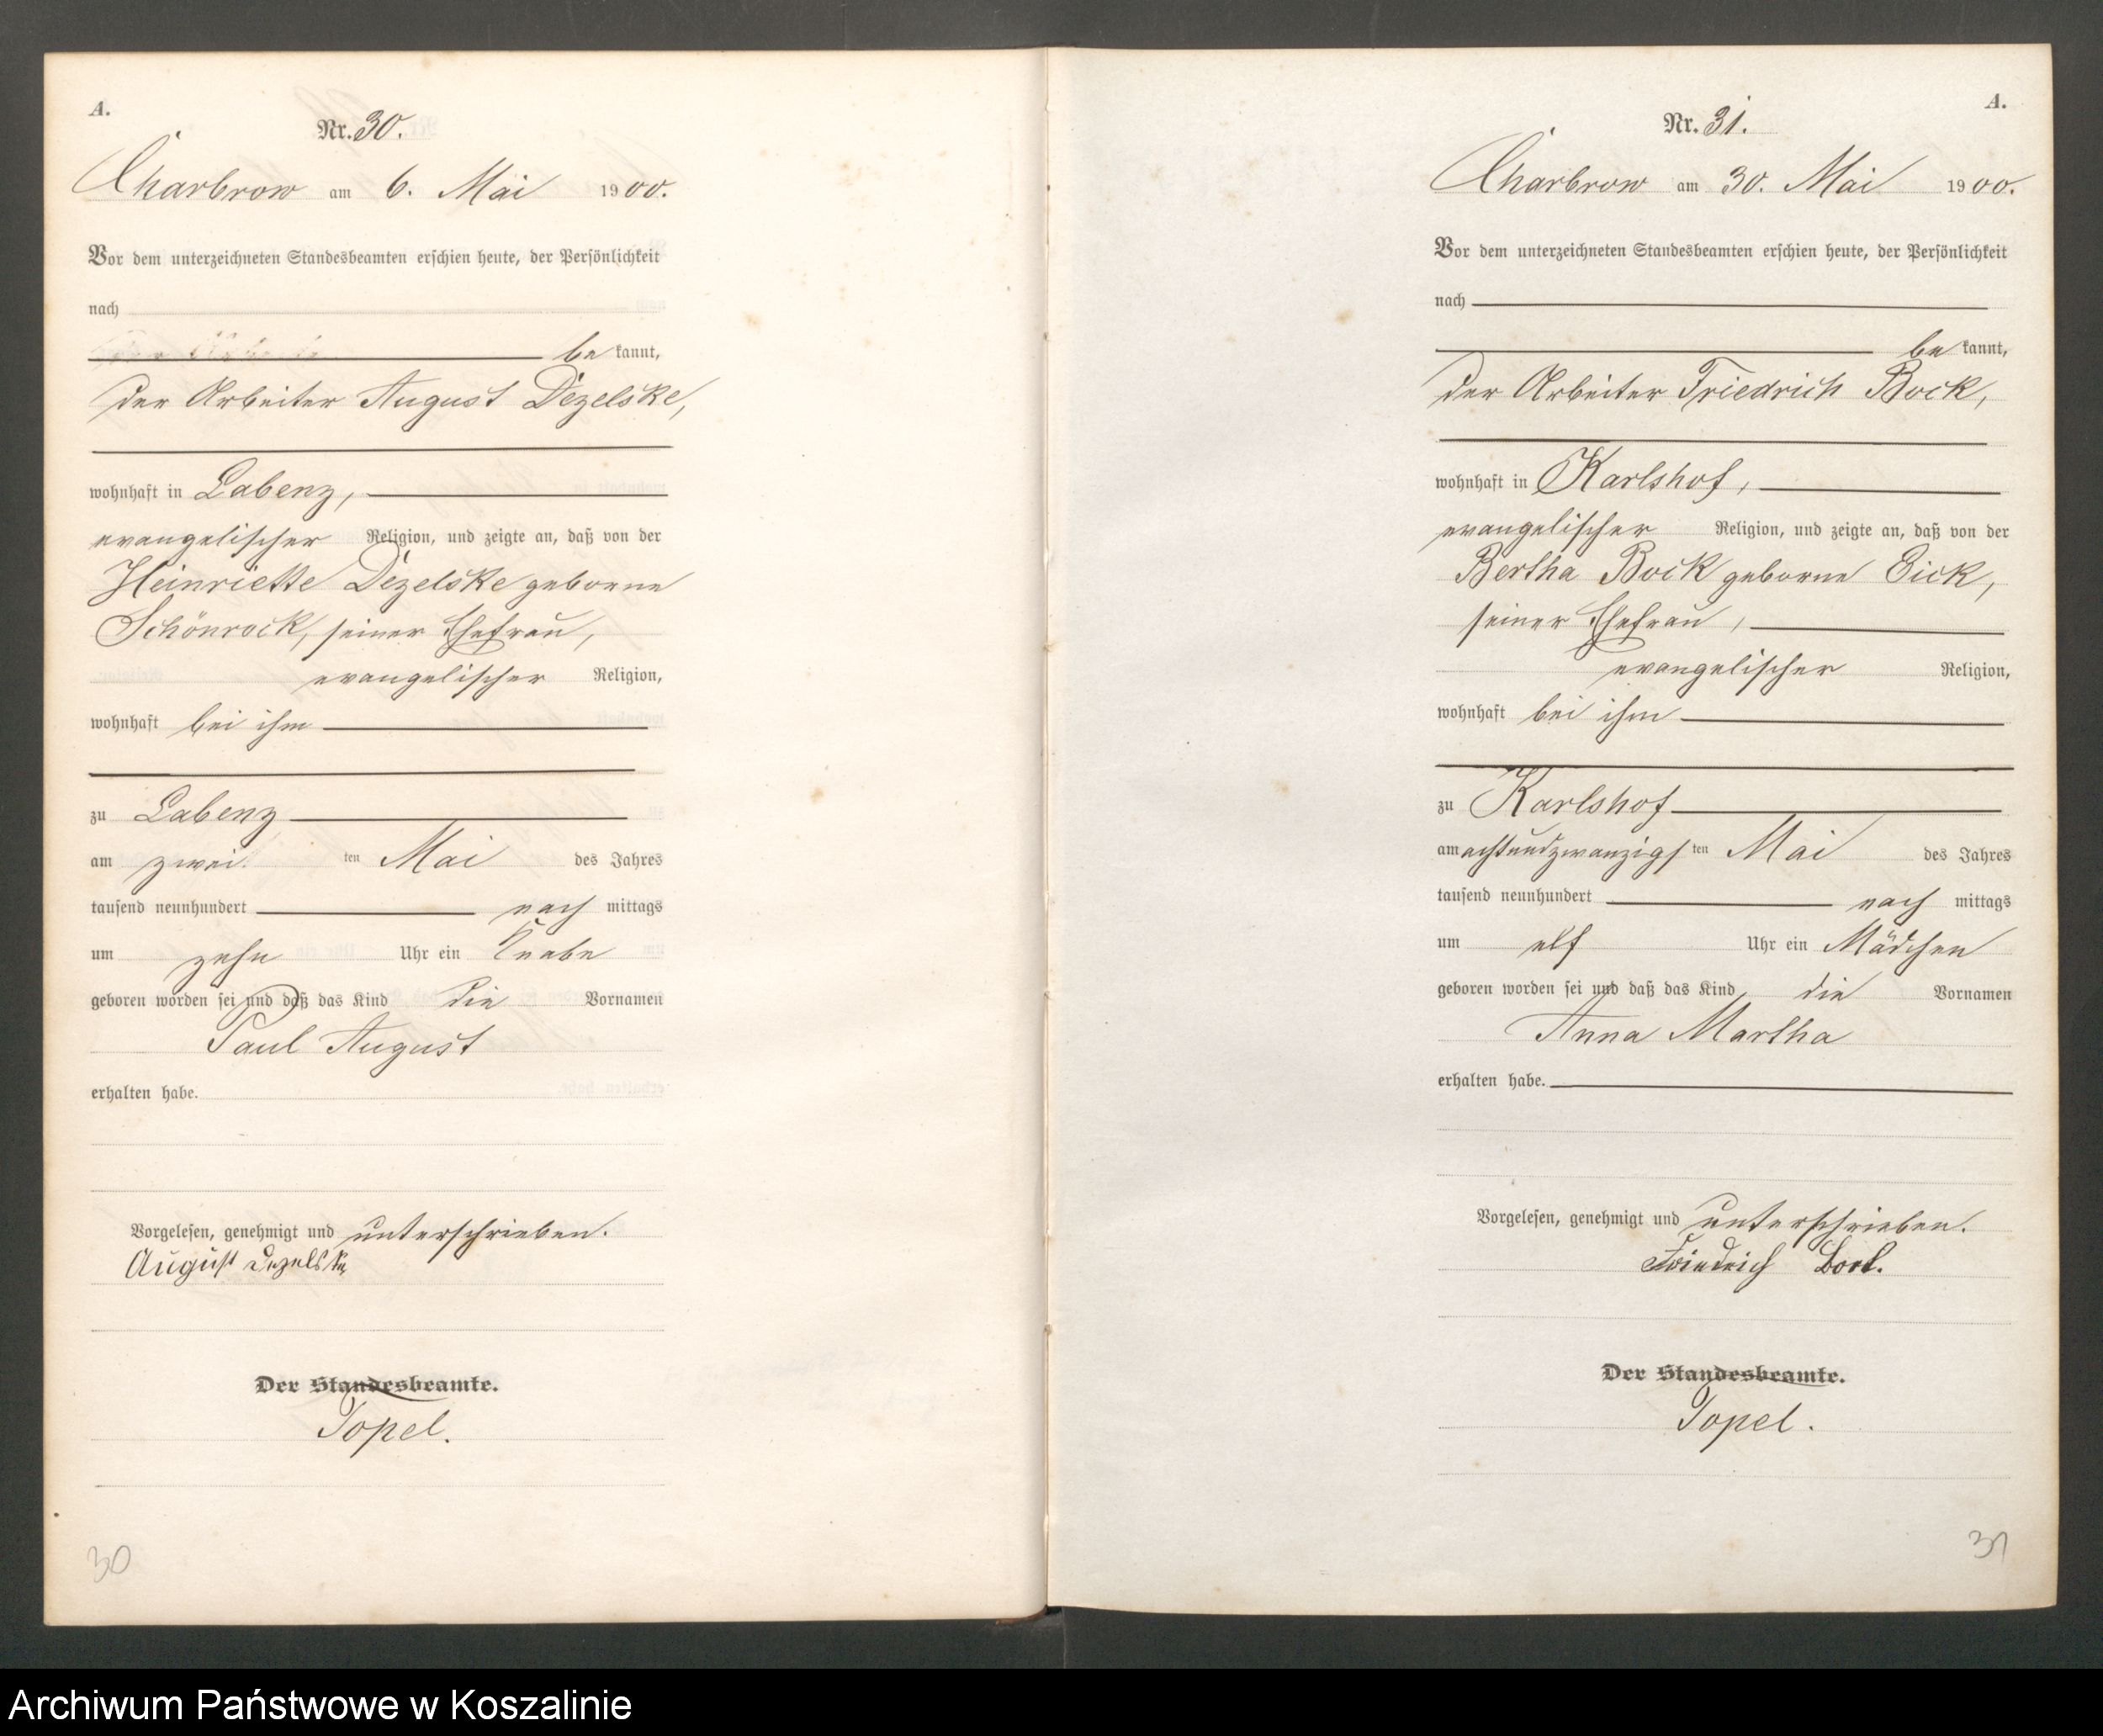 A.
Nr. 30.
Charbrow am 6. Mai 1900.
Vor dem unterzeichneten Standesbeamten erschien heute, der Persönlichkeit
nach
be kannt,
der Arbeiter August Dezelske,
wohnhaft in Labenz,
evangelischer Religion, und zeigte an, daß von der
Heinriette Dezelske geborne
Schönrock, seiner Ehefrau,
evangelischer Religion,
wohnhaft bei ihm
zu Labenz
am zwei ten Mai des Jahres
tausend neunhundert nach mittags
um zehn Uhr ein Knabe
geboren worden sei und daß das Kind die Vornamen
Paul August
erhalten habe.
Vorgelesen, genehmigt und unterschrieben.
August Dezelske
Der Standesbeamte.
Topel.
30
A.
Nr. 31.
Charbrow am 30. Mai 1900.
Vor dem unterzeichneten Standesbeamten erschien heute, der Persönlichkeit
nach
be kannt,
der Arbeiter Friedrich Bock,
wohnhaft in Karlshof,
evangelischer Religion, und zeigte an, daß von der
Bertha Bock geborne Eick,
seiner Ehefrau,
evangelischer Religion,
wohnhaft bei ihm
zu Karlshof
am achtundzwanzigs ten Mai des Jahres
tausend neunhundert nach mittags
um elf Uhr ein Mädchen
geboren worden sei und daß das Kind die Vornamen
Anna Martha
erhalten habe.
Vorgelesen, genehmigt und unterschrieben.
Friedrich Bock.
Der Standesbeamte.
Topel.
31
Archiwum Państwowe w Koszalinie